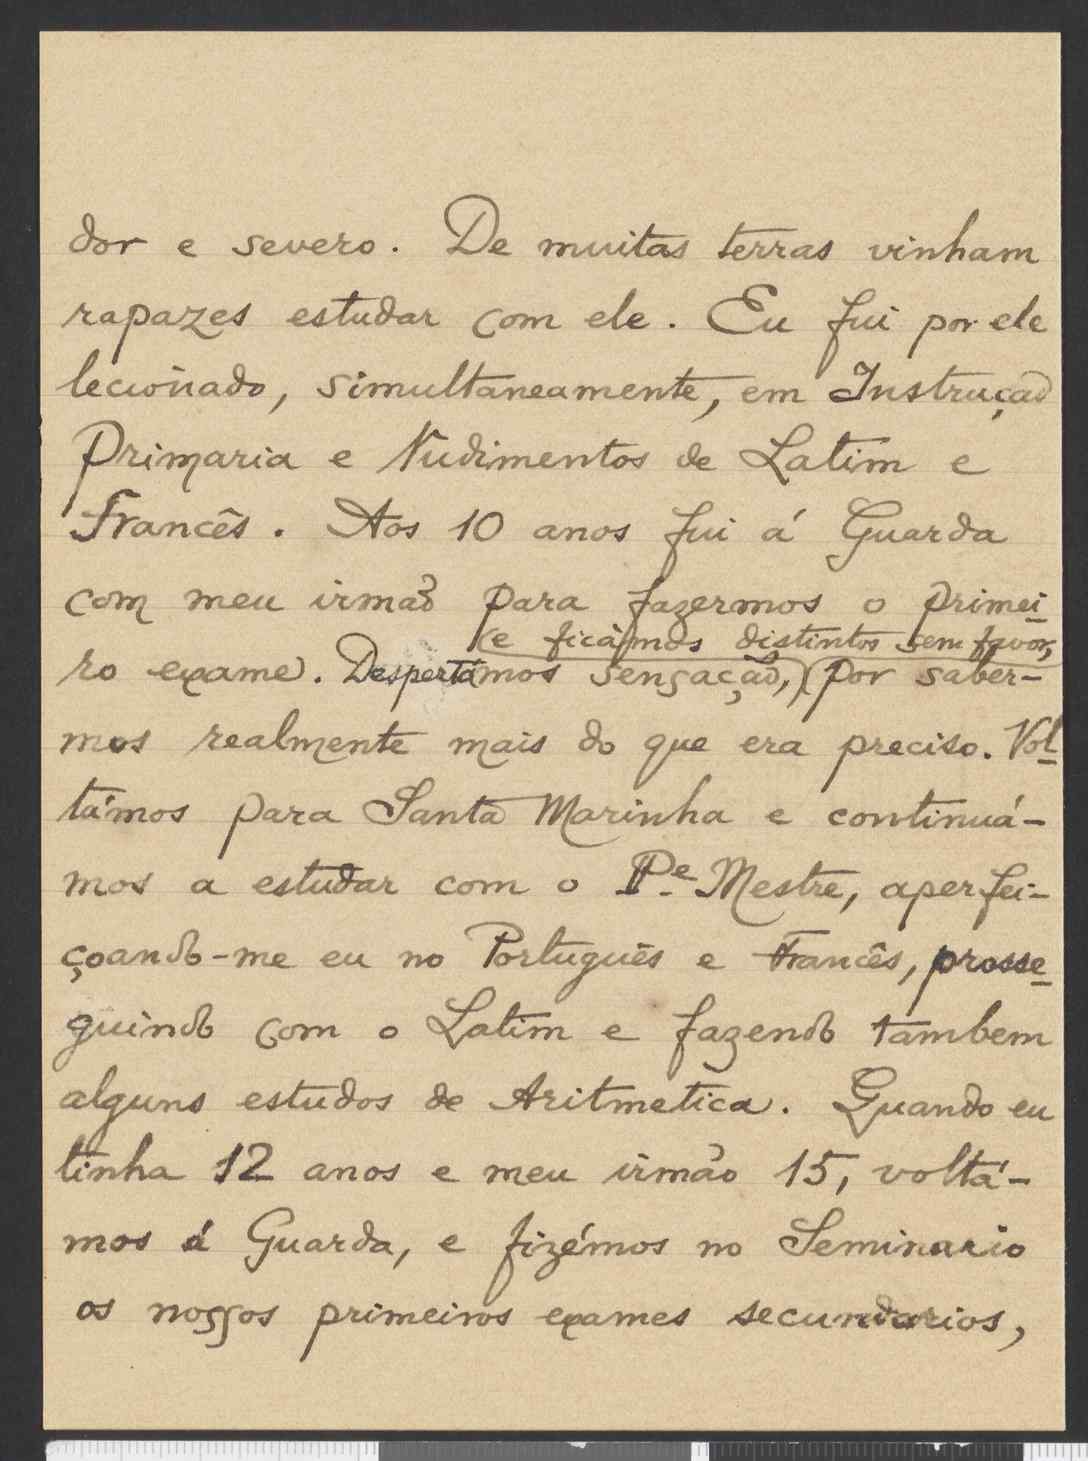 dor e severo. De muitas terras vinham
rapazes estudar com ele. Eu fui por ele
lecionado, simultaneamente, em Instrução
Primaria e Rudimentos de Latim e
Francês. Aos 10 anos fui á Guarda
com meu irmão para fazermos o primei-
(e ficámos distintos sem favor,
ro exame. Despertámos sensação,) (por saber-
mos realmente mais do que era preciso. Vol-
támos para Santa Marinha e continuá-
mos a estudar com o Pe. Mestre, aperfei-
çoando-me eu no Português e Francês, prosse-
guindo com o Latim e fazendo tambem
alguns estudos de Aritmetica. Quando eu
tinha 12 anos e meu irmão 15, voltá-
mos á Guarda, e fizémos no Seminario
os nossos primeiros exames secundarios,